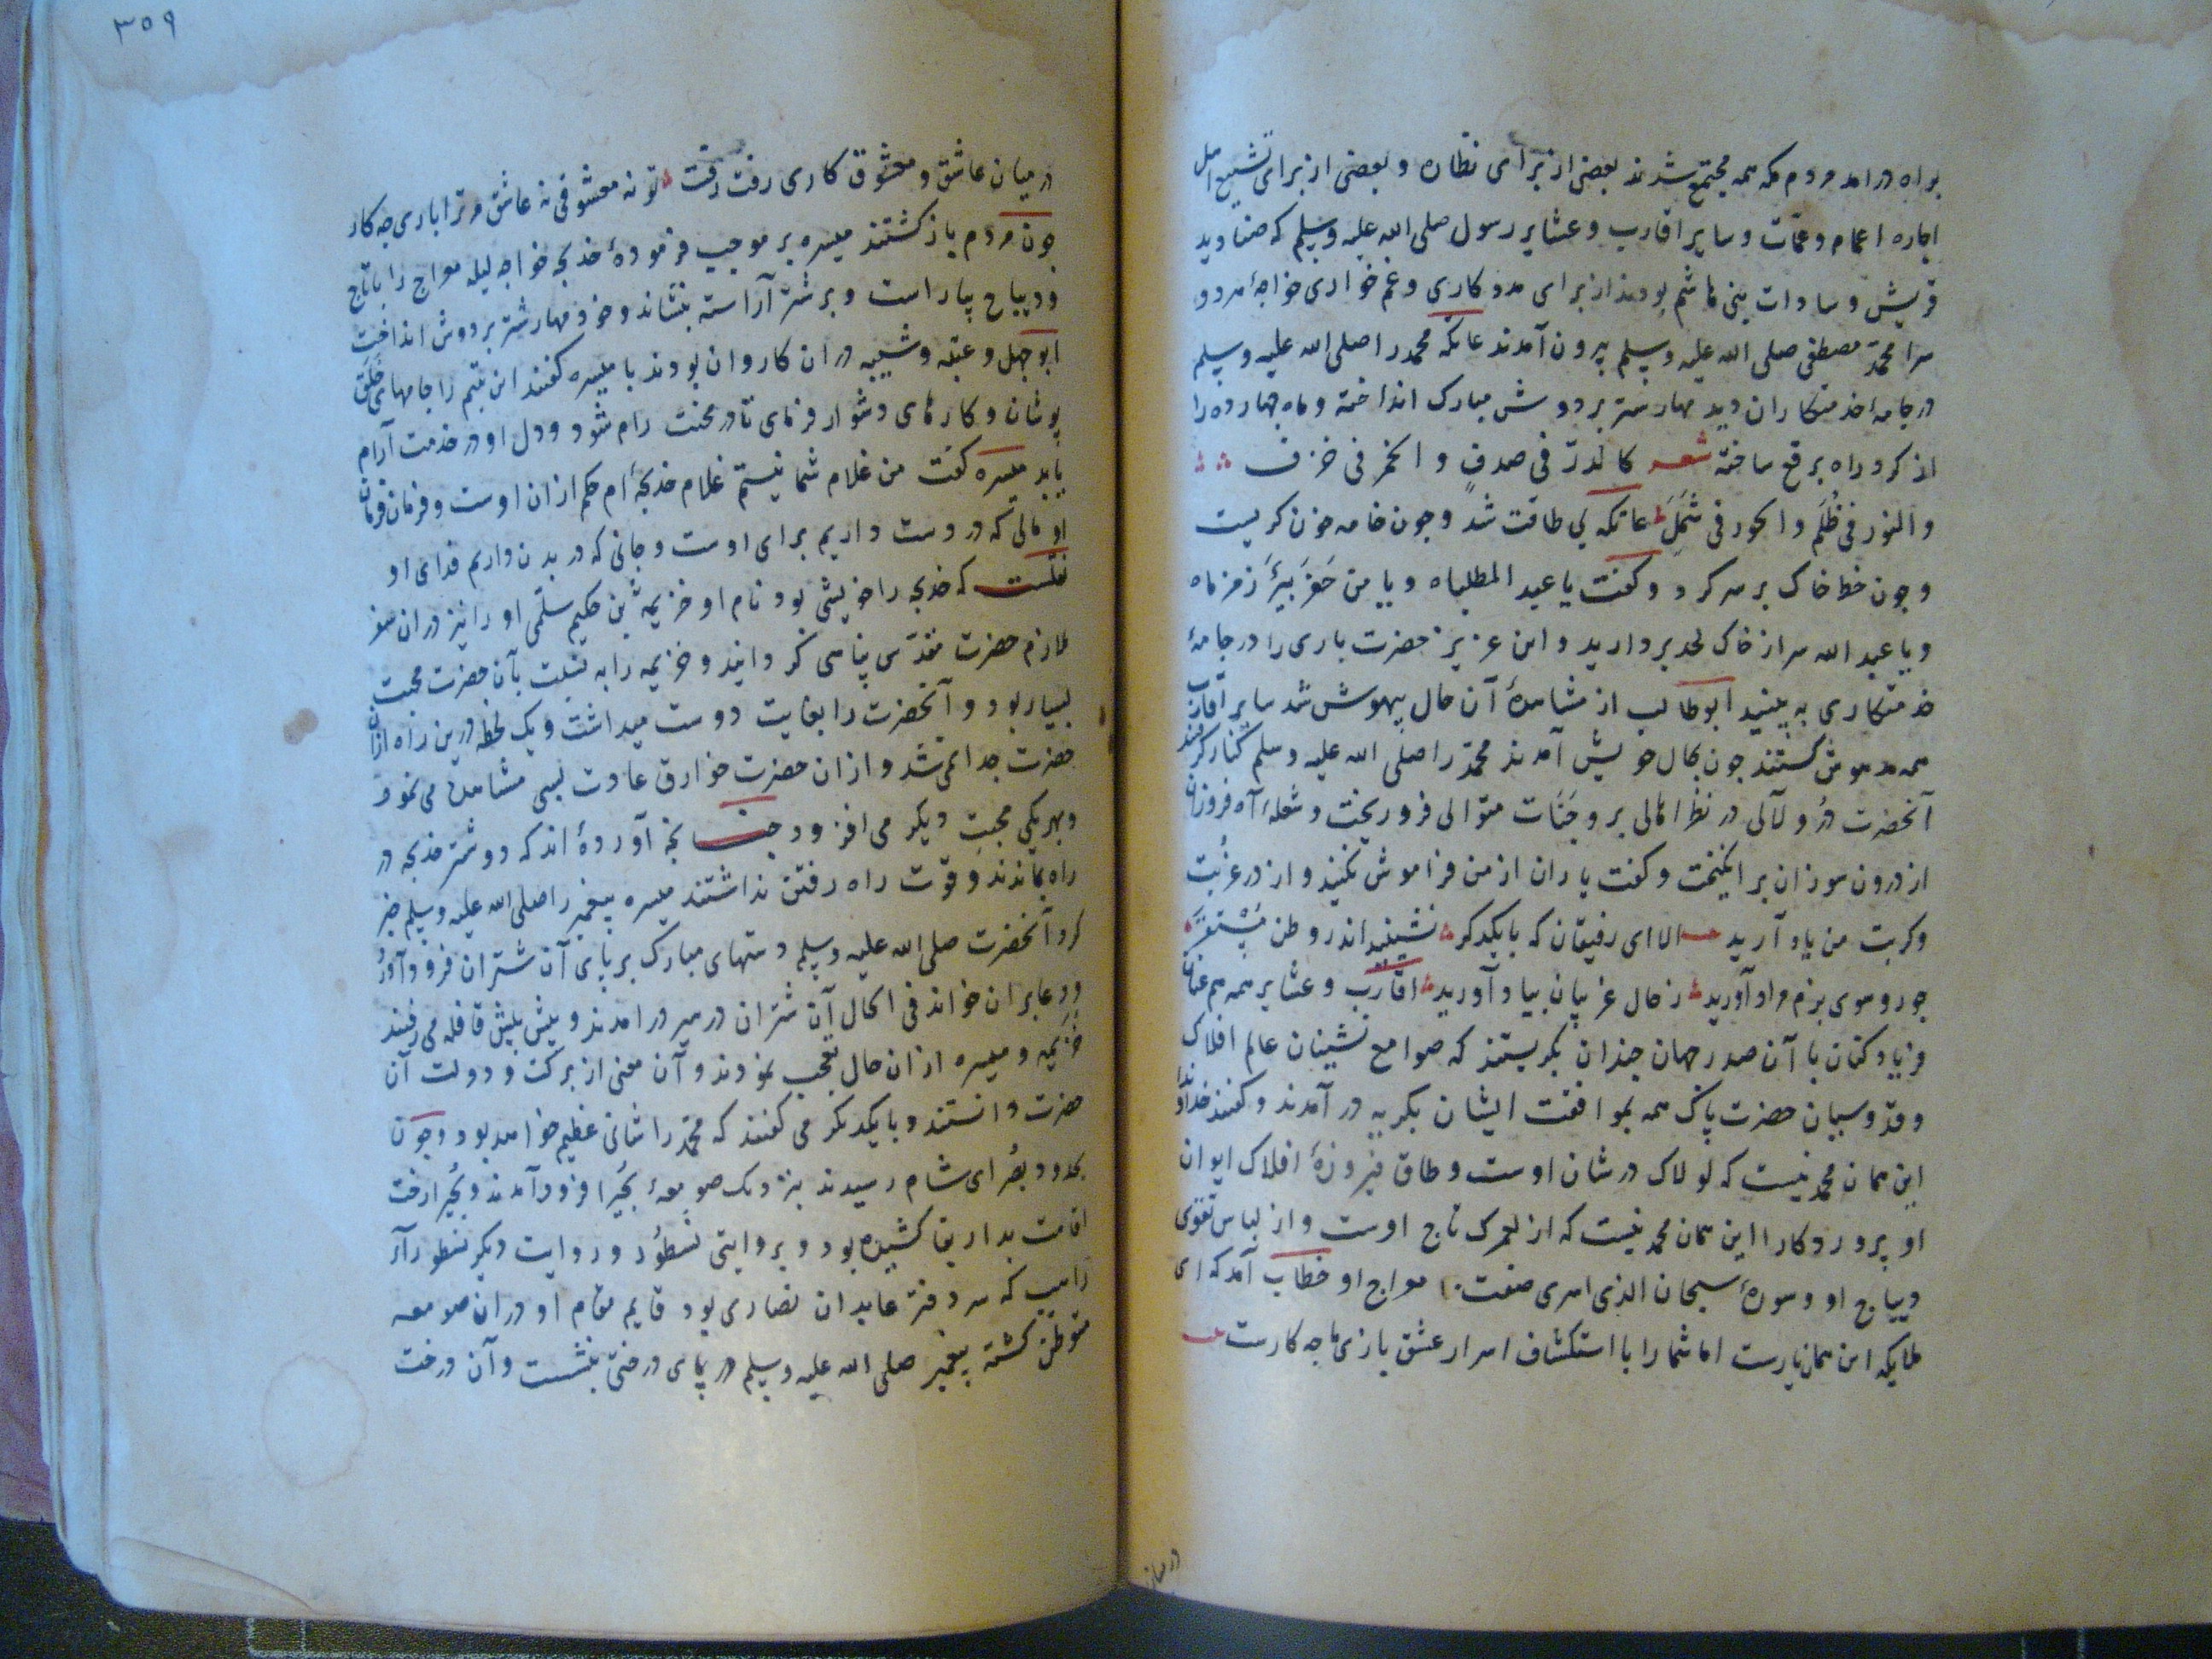 براه درامد مردم مکه همه مجتمع شدند بعضی از برای نظاره و بعضی از برای تشییع اهل
اجاره اعمام و عمّات و سایر اقارب و عشایر رسول صلی الله علیه وسلم که صنادید
قریش و سادات بنی هاشم بودند از برای مددکاری و غم خواری خواجهٔ هر دو
سرا محمّد مصطفی صلی الله علیه وسلم بیرون آمدند عاتکه محمد را صلی الله علیه وسلم
در جامهٔ خدمتکاران دید مهار شتر بر دوش مبارک انداخته و ماه چهارده را
از کرد راه برقع ساخته شعر کالدرّ فی صدفٍ و الخمر فی خزف
و النور فی ظُلَم و الحور فی شَمَل عاتکه بی طاقت شد و چون خامه خون کریست
و چون خط خاک بر سر کرد و کفت یا عبد المطلباه و یا من حَفَر بیرَ زمزماه
و یا عبد الله سر از خاک لحد بردارید و این عزیز حضرت باری را در جامهٔ
خدمتکاری به بینید ابوطالب از مشاهدهٔ آن حال بیهوش شد سایر اقارب
همه مدهوش کشتند چون بحال خویش آمدند محمّد را صلی الله علیه وسلم کنار کرفتند
آنحضرت دُر و لآلی در نظر اهالی بر وجنات متوالی فرو ریخت و شعلهٔ آه فروزان
از درون سوزان بر انکیخت و کفت یاران از من فراموش نکنید و از در غربت
و کربت من یاد آرید الا ای رفیقان که با یکدکر نشینید اندر وطن مستقر
چو روسوی بزم مراد آورید ز حال غریبان بیاد آورید اقارب و عشایر همه هم عنان
فریاد کنان با آن صدر جهان چندان بکریستند که صوامع نشینان عالم افلاک
و قدّوسیان حضرت پاک همه بموافقت ایشان بکریه درآمدند و کفتند خداوندا
این همان محمد نیست که لولاک در شان اوست و طاق فیروزهٔ افلاک ایوان
او پروردکارا این همان محمد نیست که از لعمرک تاج اوست و از لباس تقوی
دیباج او و سورهٔ سبحان الذی اسری صفت معراج او خطاب آمد که ای
ملایکه این همان یارست اما شما را با استکشاف اسرار عشق بازی ما چه کارست
درمیان
۳۵۹
درمیان عاشق و معشوق کاری رفت رفت تو نه معشوقی نه عاشق مر ترا باری چه کار
چون مردم بازکشتند میسره بر موجب فرمودهٔ خدیجه خواجه لیله معراج را بتاج
و دیباج بیاراست و بر شتر آراسته بنشاند و خود مهار شتر بر دوش انداخت
ابوجهل و عتبه و شیبه دران کاروان بودند با میسره کفتند این یتیم را جامهای خَلَق
پوشان و کارهای دشوار فرمای تا در محنت رام شود و دل او در خدمت آرام
یابد میسره کفت من غلام شما نیستم غلام خدیجهٔ ام حکم ازان اوست و فرمان فرمان
او مالی که در دست داریم برای اوست و جانی که در بدن داریم فدای او
نقلست که خدیجه را خویشی بود نام او خزیمه بن حکیم سلّمی او را نیز دران سفر
ملازم حضرت مقدّس پناهی کردانید و خزیمه را به نسبت بآن حضرت محبت
بسیار بود و آنحضرت را بغایت دوست میداشت و یک لحظه درین راه ازان
حضرت جدا نمی شد و ازان حضرت خوارق عادت بسی مشاهده می نمود
و بهریکی محبت دیکر می افزود چنانچه آورده اند که دو شتر خدیجه در
راه بماندند و قوت راه رفتن نداشتند میسره پیغمبر را صلی الله علیه وسلم خبر
کرد آنحضرت صلی الله علیه وسلم دستهای مبارک بر پای آن شتران فرود آورد
و دعا بران خواند فی الحال آن شتران در سیر درامدند و پیش پیش قافله می رفتند
خزیمه و میسره ازان حال تعجب نمودند و آن معنی از برکت و دولت آن
حضرت دانستند و با یکدیکر می کفتند که محمّد را شانی عظیم خواهد بود و چون
بحدود بصُرای شام رسیدند بنزدیک صومعهٔ بحیرا فرود آمدند و بحیرا رخت
اقامت بدار بقا کشیده بود و بروایتی نسطُور و روایت دیکر نسطورا
راهب که سر دفتر عابدان نصاری بود قایم مقام او دران صومعه
متوطن کشته پیغمبر صلی الله علیه وسلم در پای درختی بنشست و آن درخت